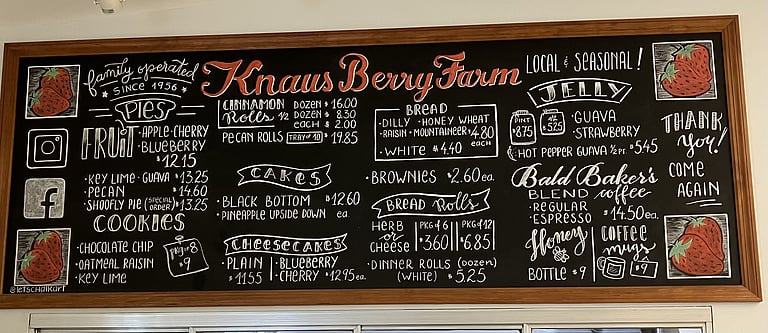 family operated
SINCE 1956
Knaus Berry Farm
LOCAL & SEASONAL!
PIES
FRUIT
• APPLE • CHERRY
• BLUEBERRY
$12.15
• KEY LIME • GUAVA $13.25
• PECAN $14.60
• SHOOFLY PIE (SPECIAL ORDER) $13.25
COOKIES
• CHOCOLATE CHIP
• OATMEAL RAISIN
• KEY LIME
PKG of 8
$9
@letschalkart
CINNAMON Rolls
DOZEN $16.00
1/2 DOZEN $8.50
EACH $2.00
PECAN ROLLS TRAY of 10 $19.85
CAKES
• BLACK BOTTOM
• PINEAPPLE UPSIDE DOWN
$12.60 ea.
CHEESECAKES
• PLAIN $11.55
• BLUEBERRY
• CHERRY $12.95 ea.
BREAD
• DILLY • HONEY WHEAT
• RAISIN • MOUNTAINEER $4.80 each
• WHITE $4.40
• BROWNIES $2.60 ea.
BREAD Rolls
HERB or CHEESE
PKG of 6 $3.60
PKG of 12 $6.85
• DINNER ROLLS (DOZEN)
(WHITE) $5.25
JELLY
PINT $8.75
1/2 $5.25
• GUAVA
• STRAWBERRY
• HOT PEPPER GUAVA 1/2 PT. $5.45
Bald Baker's
BLEND coffee
• REGULAR
• ESPRESSO $14.50 ea.
Honey
BOTTLE $9
COFFEE mugs
$9
THANK
You!
COME
AGAIN